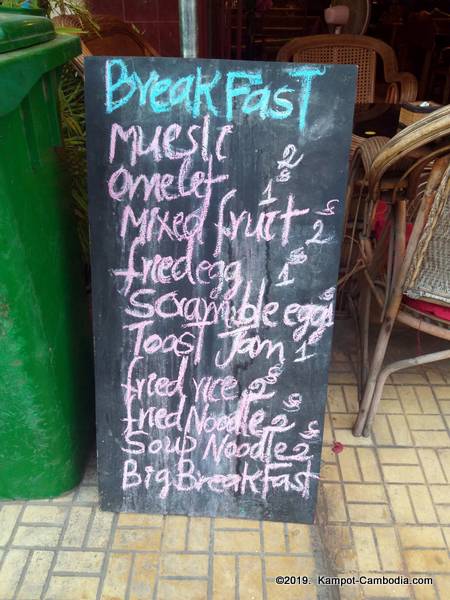 BreakFast
Muesli 2
omelet 1$
Mixed fruit 2$
fried egg 1$
Scramble eggs 1$
Toast Jam 1
fried rice 2$
fried Noodle 2$
Soup Noodle 2$
Big BreakFast
©2019. Kampot-Cambodia.com